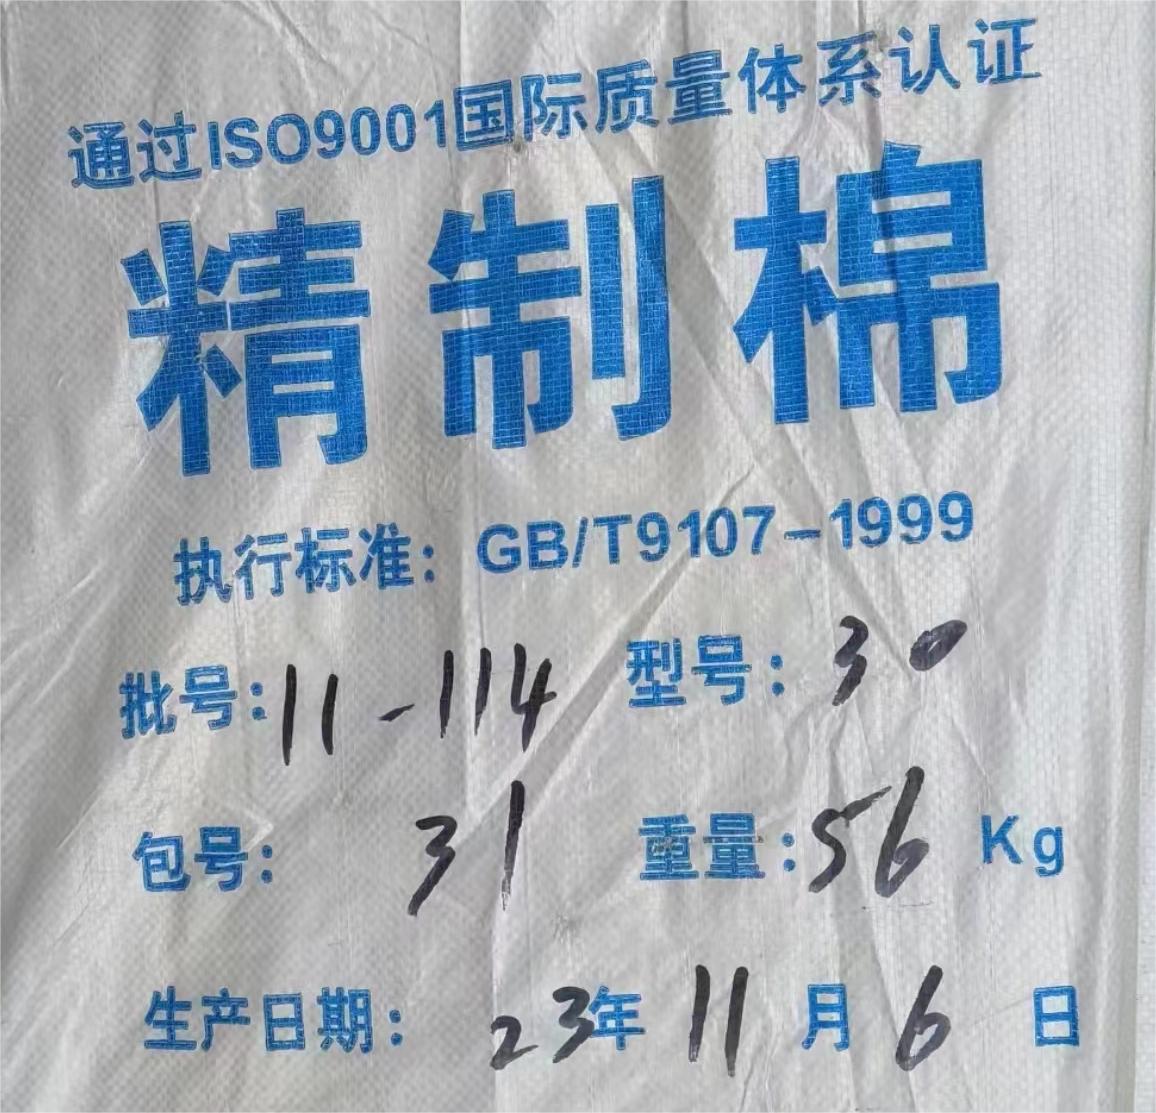 通过ISO9001国际质量体系认证
精制棉
执行标准：GB/T9107-1999
批号：11-114 型号：30
包号：31 重量：56 Kg
生产日期：23年11月6日